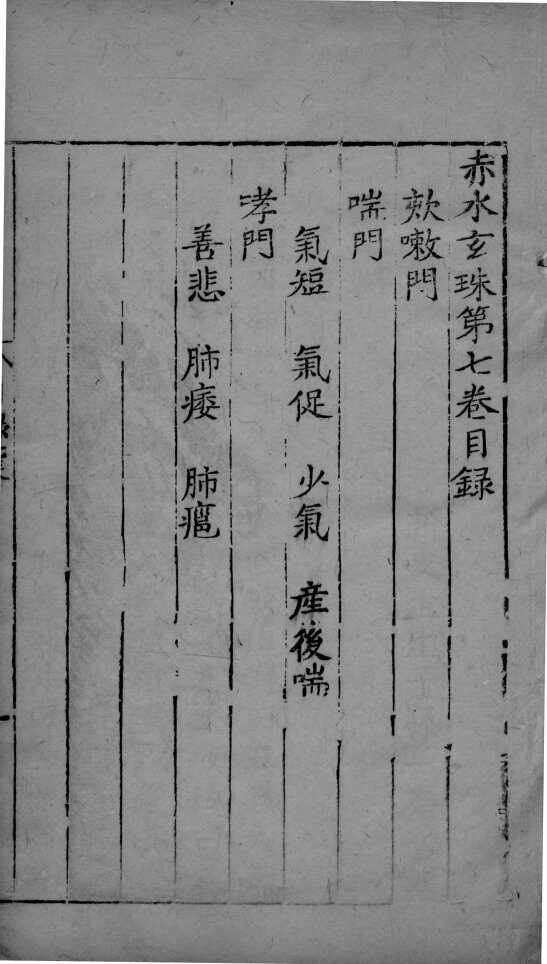 赤水玄珠第七卷目録
欬嗽門
喘門
氣短 氣促 少氣 産後喘
哮門
善悲 肺痿 肺癰